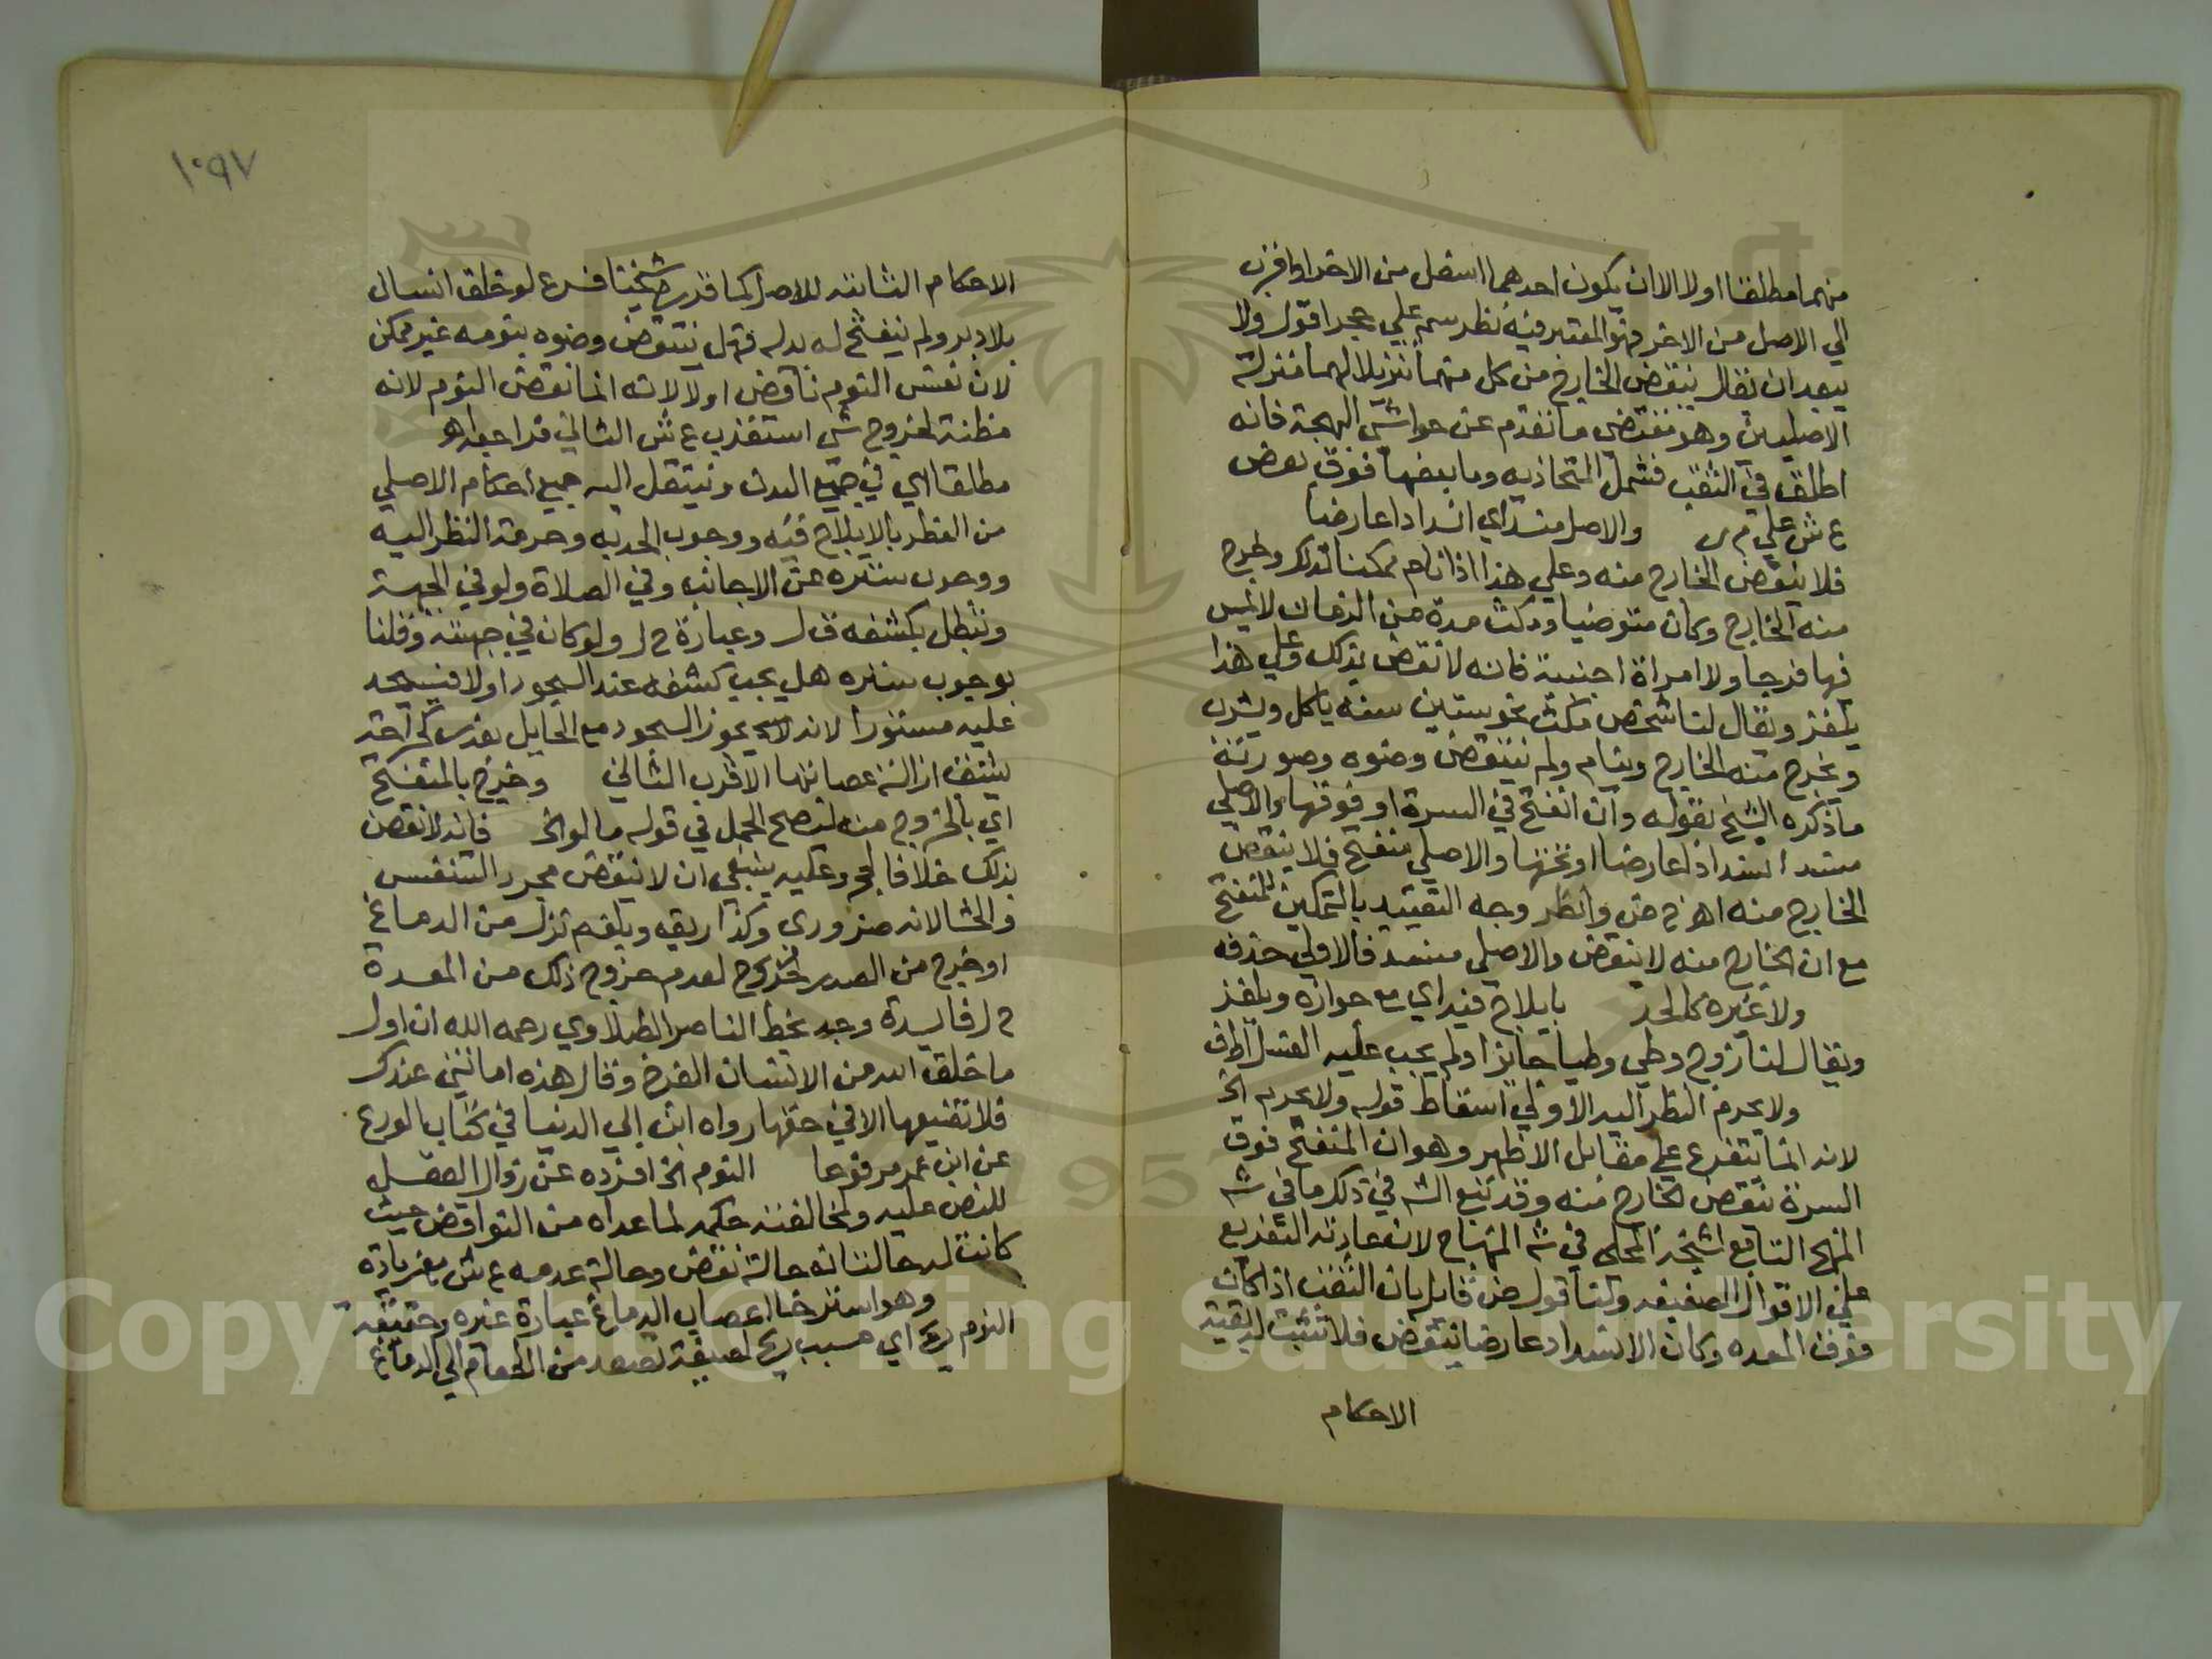 منهما مطلقا اولا الا ان يكون احدهما اسفل من الاخر او اقرب
الي الاصل من الاخر فهو المعتبر فيه نظر سم علي حجر اقول ولا
يبعد ان يقال ينقض الخارج من كل منهما تنزيلا لهما منزلة
الاصليين وهو مقتضي ما تقدم عن حواشي البهجة فانه
اطلق في الثقب فشمل المتحاذيه وما بعضها فوق بعض
ع ش علي م ر والاصل منسد اي انسدادا عارضا
فلا ينقض الخارج منه وعلي هذا اذا نام ممكنا لذلك وخرج
منه الخارج وكان متوضيا ومكث مدة من الزمان لا يمس
فيها فرجا ولا امراة اجنبية فانه لا نقض بذلك وعلي هذا
يلغز ويقال لنا شخص مكث نحو ستين سنه ياكل ويشرب
ويخرج منه الخارج وينام ولم ينتقض وضوه وصورته
ما ذكره الشيخ بقوله وان انفتح في السرة او فوقها والاصلي
منسد انسدادا عارضا او تحتها والاصلي منفتح فلا ينقض
الخارج منه اهـ ح ض وانظر وجه التقييد بالتمكين للمنفتح
مع ان الخارج منه لا ينقض والاصلي منسد فالاولي حذفه
ولا غيره كالحد بايلاج فيه اي مع جوازه ويلغز
ويقال لنا زوج وطي وطيا جايزا ولم يجب عليه الغسل
ولا يحرم النظر اليه الاولي اسقاط قوله ولا يحرم الخ
لانه انما يتفرع علي مقابل الاظهر وهو ان المنفتح فوق
السرة ينقض الخارج منه وقد تبع الش في ذلك ما في ش
المنهج التابع لشيخه المحلي في ش المنهاج لان عادته التفريع
علي الاقوال الضعيفه ولنا قول ض قايل بان الثقب اذا كان
فوق المعده وكان الانسداد عارضا ينقض فلا تثبت له بقية
الاحكام
١٠٩٧
الاحكام الثابتة للاصل كما قرره شيخنا فرع لو خلق انسان
بلا دبر ولم ينفتح له بدله فهل ينتقض وضوه بنومه غير ممكن
لان نفس النوم ناقض اولا لانه انما نقض النوم لانه
مظنة لخروج شي استقرب ع ش الثاني فراجعه اهـ
مطلقا اي في جميع البدن وينتقل اليه جميع احكام الاصلي
من الفطر بالايلاج فيه ووجوب الحد به وحرمة النظر اليه
ووجوب ستره عن الاجانب وفي الصلاة ولو في الجبهة
وتبطل بكشفه ق ل وعبارة ح ل ولو كان في جبهته وقلنا
بوجوب ستره هل يجب كشفه عند السجود اولا فيسجد
عليه مستورا لانه يجوز السجود مع الحايل بعذر كجراحة
يشق ازالة عصابتها الاقرب الثاني وخرج بالمنفتح
اي بالخروج منه ليصح الحمل في قوله ما لو الخ فانه لا نقض
بذلك خلافا لحجر وعليه ينبغي ان لا ينقض مجرد التنفس
والجشا لانه ضروري وكذا ريق وبلغم نزل من الدماغ
او خرج من الصدر لعدم خروج ذلك من المعدة
ح ل فايدة وجد بخط الناصر الطبلاوي رحمه الله ان اول
ما خلق الله من الانسان الفرج وقال هذه امانتي عندك
فلا تضيعها الا في حقها رواه ابن ابي الدنيا في كتاب الورع
عن ابن عمر مرفوعا النوم الخ افرده عن زوال العقل
للنص عليه ولمخالفته حكمه لما عداه من النواقض حيث
كانت له حالتان حالة نقض وحالة عدمه ع ش بزيادة
وهو استرخا اعصاب الدماغ عبارة غيره وحقيقة
النوم ريح اي مسبب ريح لطيفة تصعد من الطعام الي الدماغ
Copyright © King Saud University
1957